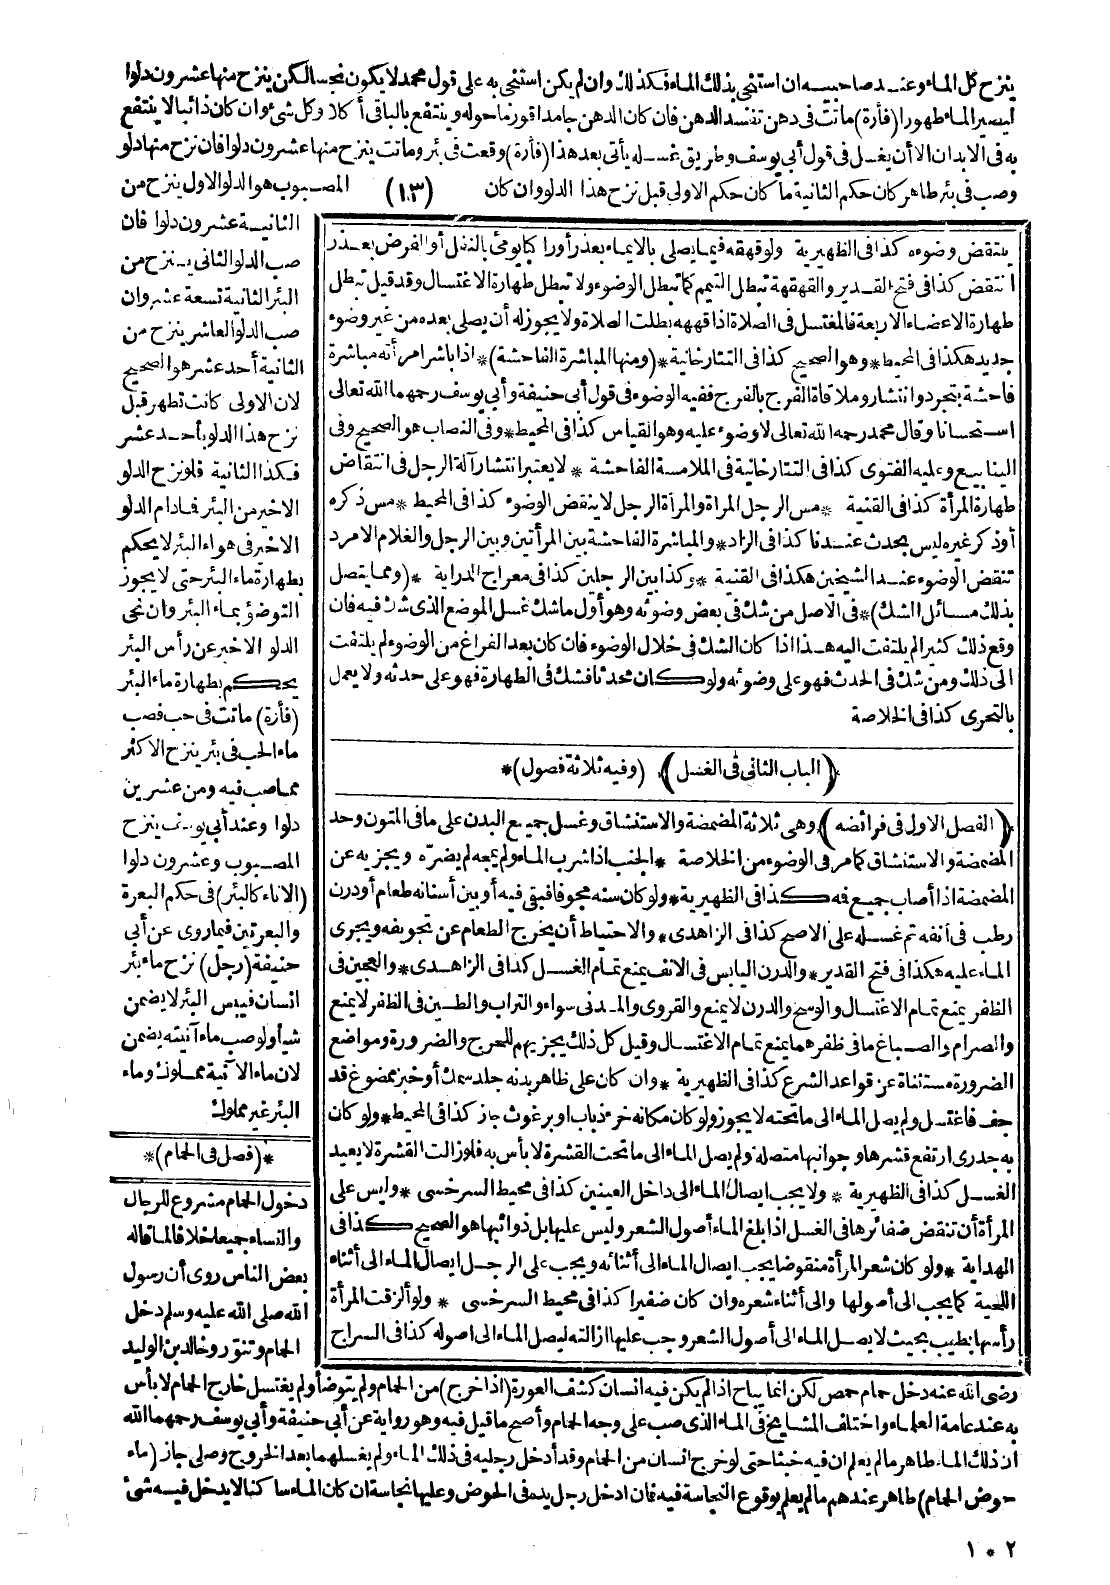 ينزح كل الماء وعند صاحبيه ان استنجى بذلك الماء فكذلك وان لم يكن استنجى به على قول محمد لا يكون نجسا لكن ينزح منها عشرون دلوا
ليصير الماء طهورا (فأرة) ماتت في دهن تفسد الدهن فان كان الدهن جامدا قور ما حوله وينتفع بالباقى أكلا وكل شئ وان كان ذائبا لا ينتفع
به في الابدان الا أن يغسل في قول أبي يوسف وطريق غسله يأتى بعد هذا (فأرة) وقعت في بئر وماتت ينزح منها عشرون دلوا فان نزح منها دلو
وصب في بئر طاهر كان حكم الثانية ما كان حكم الاولى قبل نزح هذا الدلو وان كان (١٣) المصبوب هو الدلو الاول ينزح من
الثانية عشرون دلوا فان
صب الدلو الثانى ينزح من
البئر الثانية تسعة عشر وان
صب الدلو العاشر ينزح من
الثانية أحد عشر هو الصحيح
لان الاولى كانت تطهر قبل
نزح هذا الدلو بأحد عشر
فكذا الثانية فلو نزح الدلو
الاخير من البئر فمادام الدلو
الاخير في هواء البئر لا يحكم
بطهارة ماء البئر حتى لا يجوز
التوضؤ بماء البئر وان نحى
الدلو الاخير عن رأس البئر
يحكم بطهارة ماء البئر
(فأرة) ماتت في حب فصب
ماء الحب في بئر ينزح الاكثر
مما صب فيه ومن عشرين
دلوا وعند أبي يوسف ينزح
المصبوب وعشرون دلوا
(الاناء كالبئر) في حكم البعرة
والبعرتين فيما روى عن أبي
حنيفة (رجل) نزح ماء بئر
انسان فيبس البئر لا يضمن
شيأ ولو صب ماء آنيته يضمن
لان ماء الآنية مملوك وماء
البئر غير مملوك
*(فصل في الحمام)*
دخول الحمام مشروع للرجال
والنساء جميعا خلافا لما قاله
بعض الناس روى أن رسول
الله صلى الله عليه وسلم دخل
الحمام وتنور وخالد بن الوليد
ينتقض وضوءه كذا في الظهيرية ولو قهقه فيما يصلى بالايماء بعذر أو راكبا يومئ بالنفل أو الفرض بعذر
انتقض كذا في فتح القدير والقهقهة تبطل التيمم كما تبطل الوضوء ولا تبطل طهارة الاغتسال وقد قيل تبطل
طهارة الاعضاء الاربعة فالمغتسل في الصلاة اذا قهقه بطلت الصلاة ولا يجوز له أن يصلى بعده من غير وضوء
جديد هكذا في المحيط * وهو الصحيح كذا في التتارخانية *(ومنها المباشرة الفاحشة)* اذا باشر امرأته مباشرة
فاحشة بتجرد وانتشار وملاقاة الفرج بالفرج ففيه الوضوء في قول أبي حنيفة وأبي يوسف رحمهما الله تعالى
استحسانا وقال محمد رحمه الله تعالى لا وضوء عليه وهو القياس كذا في المحيط * وفي النصاب هو الصحيح وفي
الينابيع وعليه الفتوى كذا في التتارخانية في الملامسة الفاحشة * لا يعتبر انتشار آلة الرجل في انتقاض
طهارة المرأة كذا في القنية * مس الرجل المرأة والمرأة الرجل لا ينقض الوضوء كذا في المحيط * مس ذكره
أو ذكر غيره ليس بحدث عندنا كذا في الزاد * والمباشرة الفاحشة بين المرأتين وبين الرجل والغلام الامرد
تنقض الوضوء عند الشيخين هكذا في القنية * وكذا بين الرجلين كذا في معراج الدراية *(ومما يتصل
بذلك مسائل الشك)* في الاصل من شك في بعض وضوئه وهو أول ما شك غسل الموضع الذى شك فيه فان
وقع ذلك كثيرا لم يلتفت اليه هذا اذا كان الشك في خلال الوضوء فان كان بعد الفراغ من الوضوء لم يلتفت
الى ذلك ومن شك في الحدث فهو على وضوئه ولو كان محدثا فشك في الطهارة فهو على حدثه ولا يعمل
بالتحرى كذا في الخلاصة
(الباب الثانى في الغسل) (وفيه ثلاثة فصول)*
(الفصل الاول في فرائضه) وهى ثلاثة المضمضة والاستنشاق وغسل جميع البدن على ما في المتون وحد
المضمضة والاستنشاق كما مر في الوضوء من الخلاصة * الجنب اذا شرب الماء ولم يمجه لم يضره ويجزيه عن
المضمضة اذا أصاب جميع فه كذا في الظهيرية * ولو كان سنه مجوفا فبقى فيه أو بين أسنانه طعام أو درن
رطب في أنفه تم غسله على الاصح كذا في الزاهدى * والاحتياط أن يخرج الطعام عن تجويفه ويجرى
الماء عليه هكذا في فتح القدير * والدرن اليابس في الانف يمنع تمام الغسل كذا في الزاهدى * والعجين في
الظفر يمنع تمام الاغتسال والوسخ والدرن لا يمنع والقروى والمدنى سواء والتراب والطين في الظفر لا يمنع
والصرام والصباغ ما في ظفرهما يمنع تمام الاغتسال وقيل كل ذلك يجزيهم للحرج والضرورة ومواضع
الضرورة مستثناة عن قواعد الشرع كذا في الظهيرية * وان كان على ظاهر بدنه جلد سمك أو خبز ممضوغ قد
جف فاغتسل ولم يصل الماء الى ما تحته لا يجوز ولو كان مكانه خرء ذباب او برغوث جاز كذا في المحيط * ولو كان
به جدرى ارتفع قشرها وجوانبها متصلة ولم يصل الماء الى ما تحت القشرة لا بأس به فلو زالت القشرة لا يعيد
الغسل كذا في الظهيرية * ولا يجب ايصال الماء الى داخل العينين كذا في محيط السرخسى * وليس على
المرأة أن تنقض ضفائرها في الغسل اذا بلغ الماء أصول الشعر وليس عليها بل ذوائبها هو الصحيح كذا في
الهداية * ولو كان شعر المرأة منقوضا يجب ايصال الماء الى أثنائه ويجب على الرجل ايصال الماء الى أثناء
اللحية كما يجب الى أصولها والى أثناء شعره وان كان ضفيرا كذا في محيط السرخسى * ولو ألزقت المرأة
رأسها بطيب بحيث لا يصل الماء الى أصول الشعر وجب عليها ازالته ليصل الماء الى اصوله كذا في السراج
رضى الله عنه دخل حمام حمص لكن انما يباح اذا لم يكن فيه انسان كشف العورة (اذا خرج) من الحمام ولم يتوضأ ولم يغتسل خارج الحمام لا بأس
به عند عامة العلماء واختلف المشايخ في الماء الذى صب على وجه الحمام وأصح ما قيل فيه وهو رواية عن أبي حنيفة وأبي يوسف رحمهما الله
ان ذلك الماء طاهر ما لم يعلم ان فيه خبثا حتى لو خرج انسان من الحمام وقد أدخل رجليه في ذلك الماء ولم يغسلهما بعد الخروج وصلى جاز (ماء
حوض الحمام) طاهر عندهم ما لم يعلم بوقوع النجاسة فيه فان ادخل رجل يده في الحوض وعليها نجاسة ان كان الماء ساكنا لا يدخل فيه شئ
١٠٢